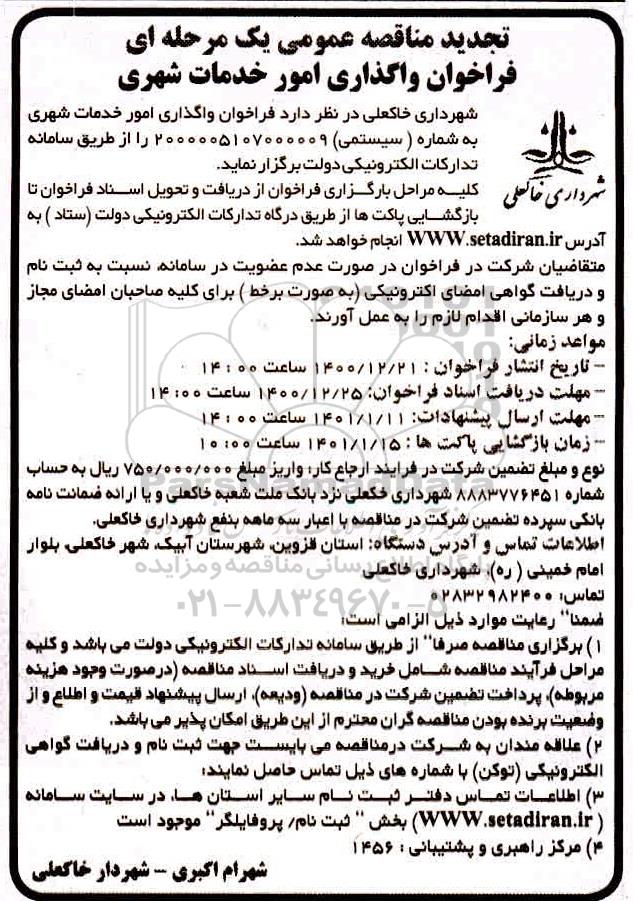 تجدید مناقصه عمومی یک مرحله ای
فراخوان واگذاری امور خدمات شهری
شهرداری خاکعلی
شهرداری خاکعلی در نظر دارد فراخوان واگذاری امور خدمات شهری
به شماره ( سیستمی) ۲۰۰۰۰۰۵۱۰۷۰۰۰۰۰۹ را از طریق سامانه
تدارکات الکترونیکی دولت برگزار نماید.
کلیه مراحل بارگزاری فراخوان از دریافت و تحویل اسناد فراخوان تا
بازگشایی پاکت ها از طریق درگاه تدارکات الکترونیکی دولت (ستاد ) به
آدرس WWW.setadiran.ir انجام خواهد شد.
متقاضیان شرکت در فراخوان در صورت عدم عضویت در سامانه، نسبت به ثبت نام
و دریافت گواهی امضای اکترونیکی (به صورت برخط ) برای کلیه صاحبان امضای مجاز
و هر سازمانی اقدام لازم را به عمل آورند.
مواعد زمانی:
– تاریخ انتشار فراخوان : ۱۴۰۰/۱۲/۲۱ ساعت ۰۰ : ۱۴
– مهلت دریافت اسناد فراخوان: ۱۴۰۰/۱۲/۲۵ ساعت ۰۰: ۱۴
– مهلت ارسال پیشنهادات: ۱۴۰۱/۱/۱۱ ساعت ۰۰ : ۱۴
– زمان بازگشایی پاکت ها : ۱۴۰۱/۱/۱۵ ساعت ۰۰: ۱۰
نوع و مبلغ تضمین شرکت در فرایند ارجاع کار: واریز مبلغ ۷۵۰/۰۰۰/۰۰۰ ریال به حساب
شماره ۸۸۸۳۷۷۶۴۵۱ شهرداری خکعلی نزد بانک ملت شعبه خاکعلی و یا ارائه ضمانت نامه
بانکی سپرده تضمین شرکت در مناقصه با اعبار سه ماهه بنفع شهرداری خاکعلی.
اطلاعات تماس و آدرس دستگاه: استان قزوین، شهرستان آبیک، شهر خاکعلی، بلوار
امام خمینی ( ره)، شهرداری خاکعلی
تماس: ۰۲۸۳۲۹۸۲۴۰۰
ضمنا" رعایت موارد ذیل الزامی است:
۱) برگزاری مناقصه صرفا" از طریق سامانه تدارکات الکترونیکی دولت می باشد و کلیه
مراحل فرآیند مناقصه شامل خرید و دریافت اسناد مناقصه (درصورت وجود هزینه
مربوطه)، پرداخت تضمین شرکت در مناقصه (ودیعه)، ارسال پیشنهاد قیمت و اطلاع و از
وضعیت برنده بودن مناقصه گران محترم از این طریق امکان پذیر می باشد.
۲) علاقه مندان به شرکت درمناقصه می بایست جهت ثبت نام و دریافت گواهی
الکترونیکی (توکن) با شماره های ذیل تماس حاصل نمایند:
۳) اطلاعات تماس دفتر ثبت نام سایر استان ها، در سایت سامانه
( WWW.setadiran.ir) بخش " ثبت نام/ پروفایلگر" موجود است
۴) مرکز راهبری و پشتیبانی : ۱۴۵۶
شهرام اکبری – شهردار خاکعلی
ParsNamadData
پایگاه اطلاع رسانی مناقصه و مزایده
۰۲۱-۸۸۳۴۹۶۷۰-۵